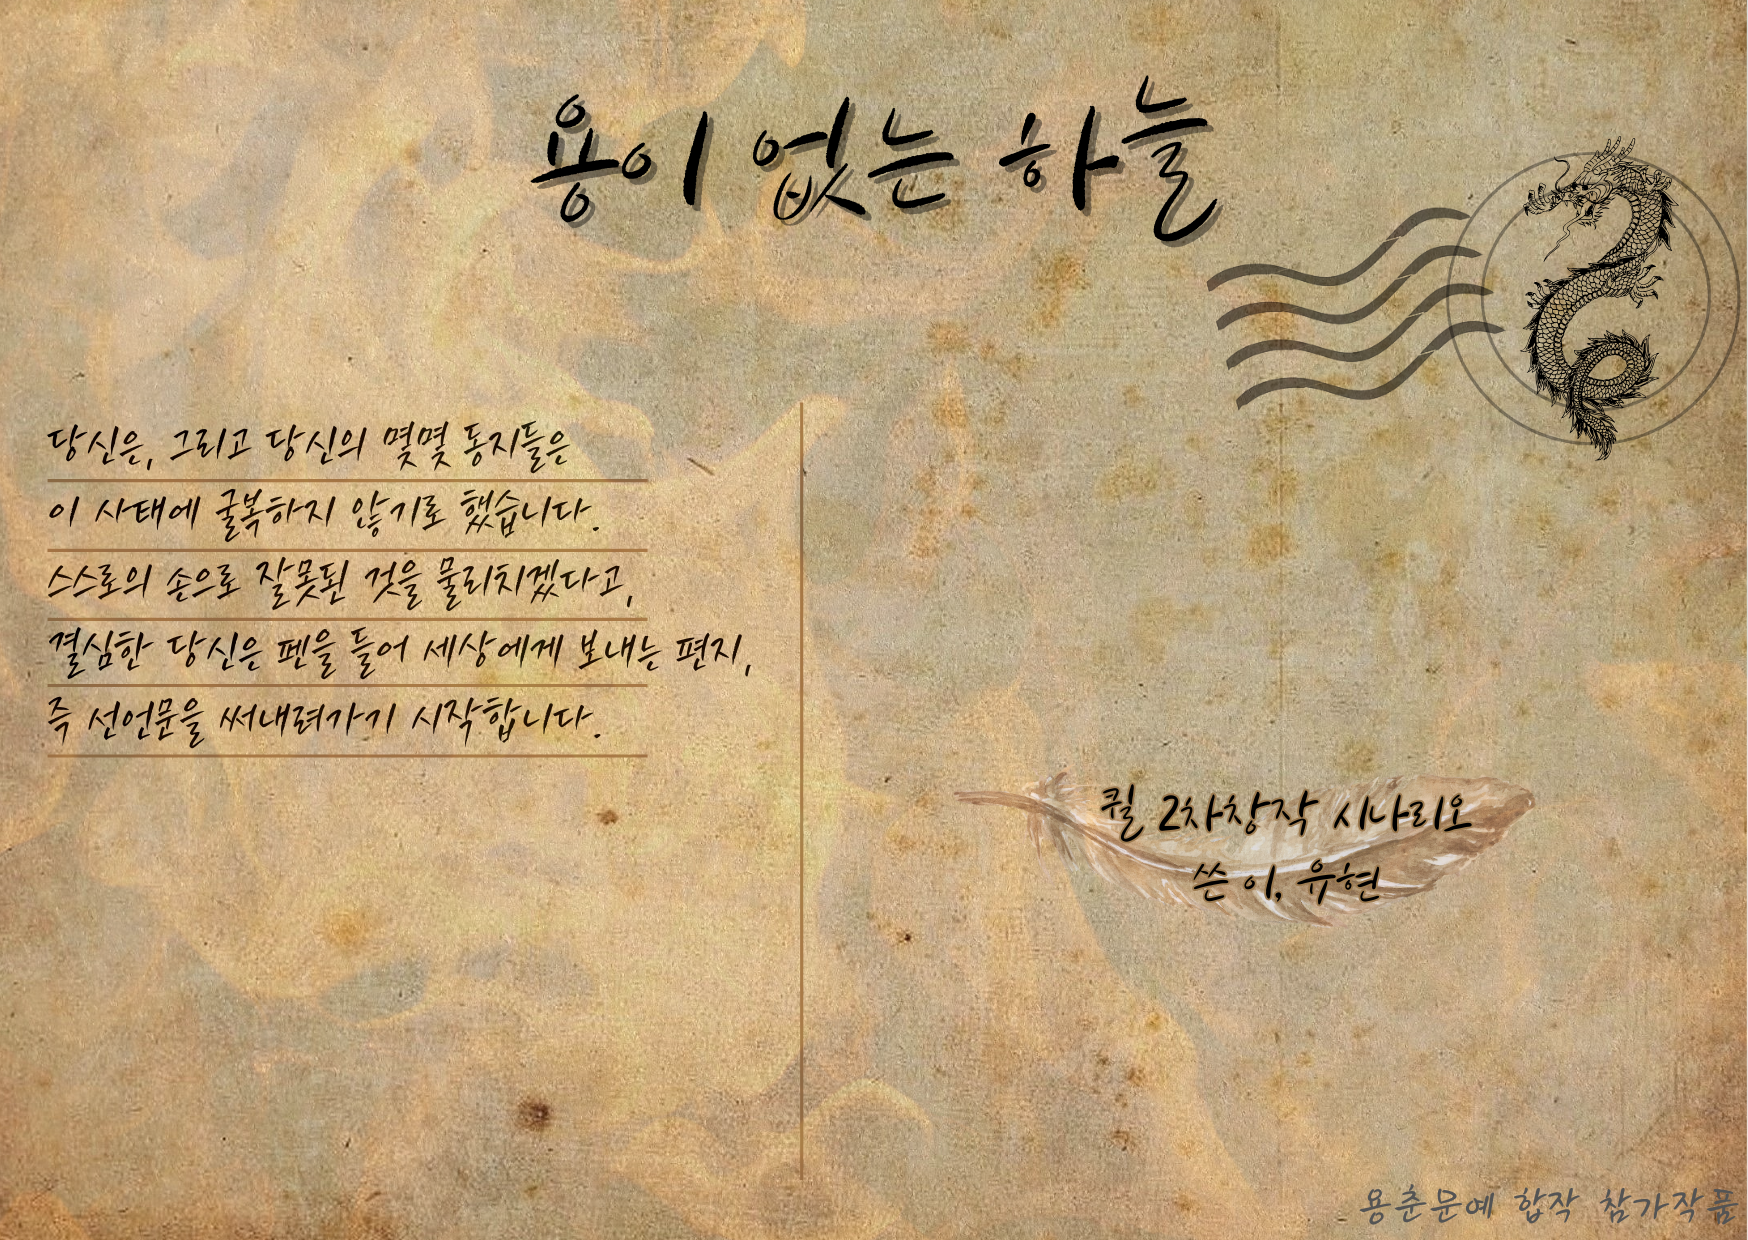 용이 없는 하늘
당신은, 그리고 당신의 몇몇 동지들은
이 사태에 굴복하지 않기로 했습니다.
스스로의 손으로 잘못된 것을 물리치겠다고,
결심한 당신은 펜을 들어 세상에게 보내는 편지,
즉 선언문을 써내려가기 시작합니다.
퀼 2차창작 시나리오
쓴 이, 유현
용춘문예 합작 참가작품